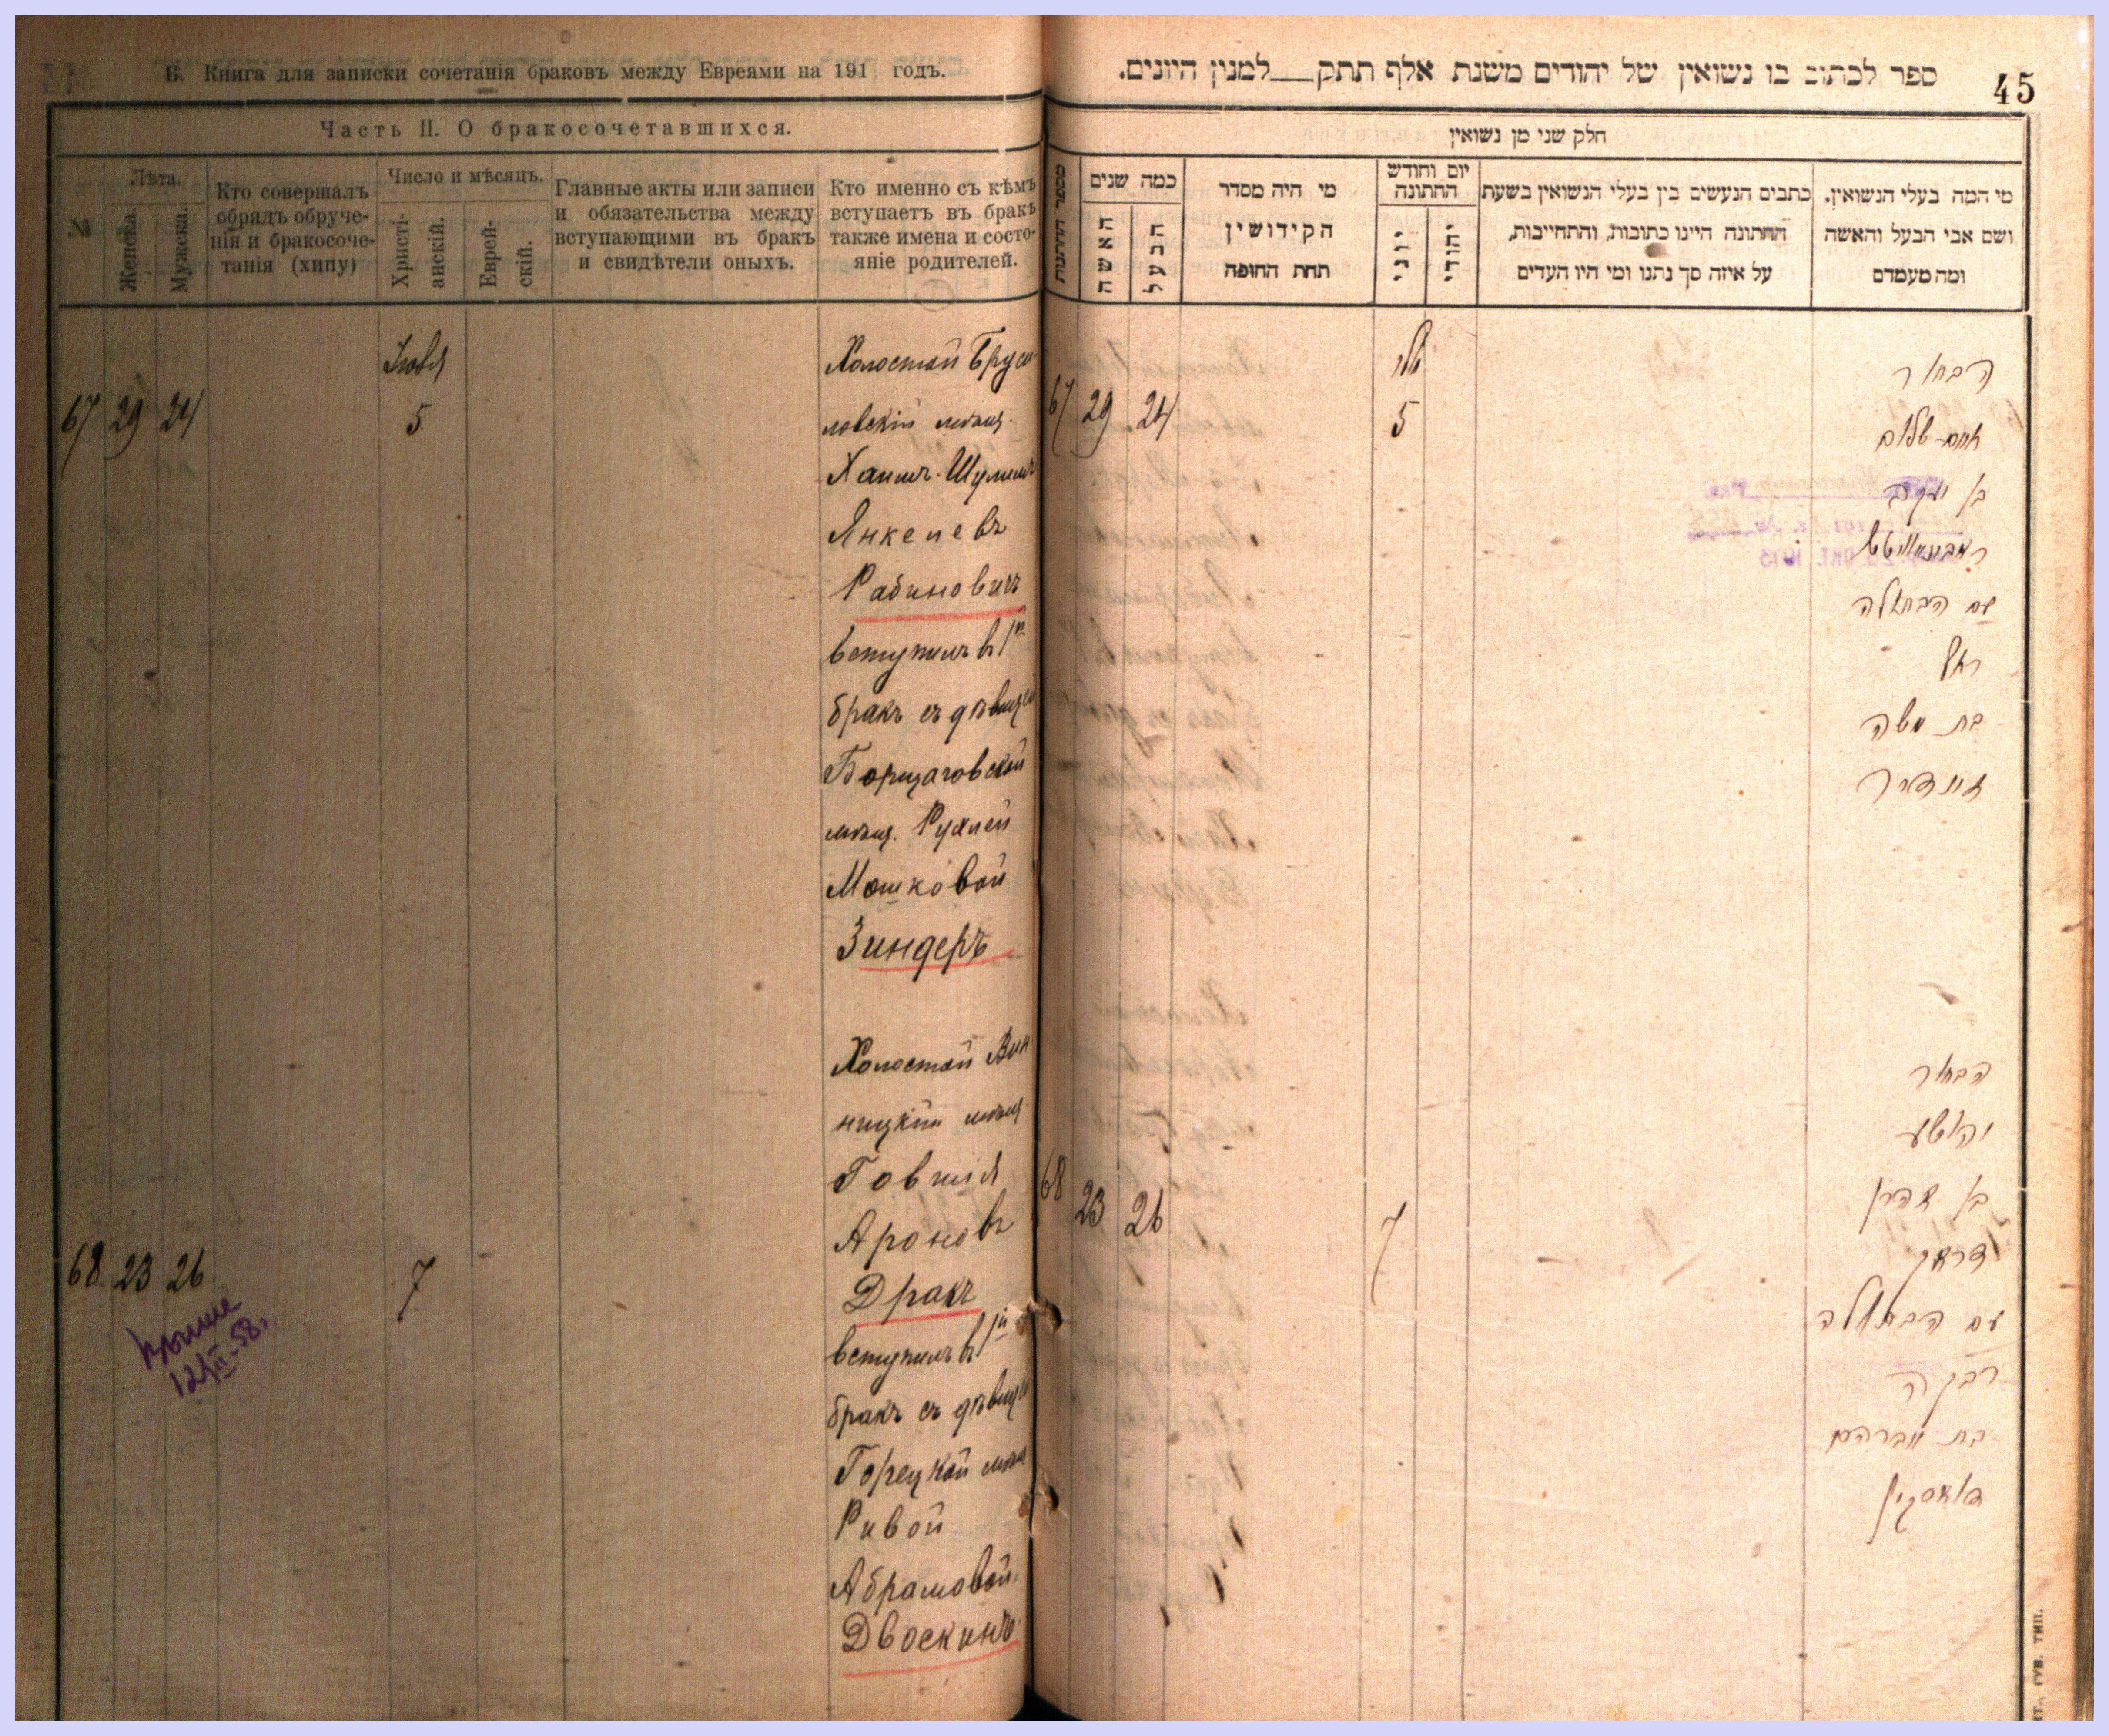 Б. Книга для записки сочетанія браковъ между Евреями на 191 годъ.
Часть II. О бракосочетавшихся.
№
Лѣта.
Женска.
Мужска.
Кто совершалъ
обрядъ обруче-
нія и бракосоче-
танія (хипу)
Число и мѣсяцъ.
Христі-
анскій.
Еврей-
скій.
Главные акты или записи
и обязательства между
вступающими въ бракъ
и свидѣтели оныхъ.
Кто именно съ кѣмъ
вступаетъ въ бракъ
также имена и состо-
яніе родителей.
67 29 24
5
Холостой Бруси-
ловскій мѣщ.
Хаимъ-Шулимъ
Янкелевъ
Рабиновичъ
вступилъ въ 1й
бракъ съ дѣвицей
Борщаговской
мѣщ. Рухлей
Мошковой
Зиндеръ
68 23 26
7
12/II-58г.
Холостой Вин
ницкій мѣщ.
Говшія
Ароновъ
Дракъ
вступилъ въ 1й
бракъ съ дѣвицей
Горецкой мѣщ
Ривой
Абрамовой
Двоскинъ
45
ספר לכתוב בו נשואין של יהודים משנת אלף תתק למנין היונים.
חלק שני מן נשואין
מספר החתונות
כמה שנים
האשה
הבעל
מי היה מסדר
הקידושין
תחת החופה
יום וחודש
החתונה
יוני
יהודי
כתבים הנעשים בין בעלי הנשואין בשעת
החתונה היינו כתובות, והתחייבות,
על איזה סך נתנו ומי היו העדים
מי המה בעלי הנשואין.
ושם אבי הבעל והאשה
ומה מעמדם
67 29 24
5
הבחור
חיים-שלום
בן יעקב
ראבינאוויטש
עם הבתולה
רחל
בת משה
זינדער
68 23 26
7
הבחור
יהושע
בן אהרן
דראק
עם הבתולה
רבקה
בת אברהם
דוואסקין
ТИП.